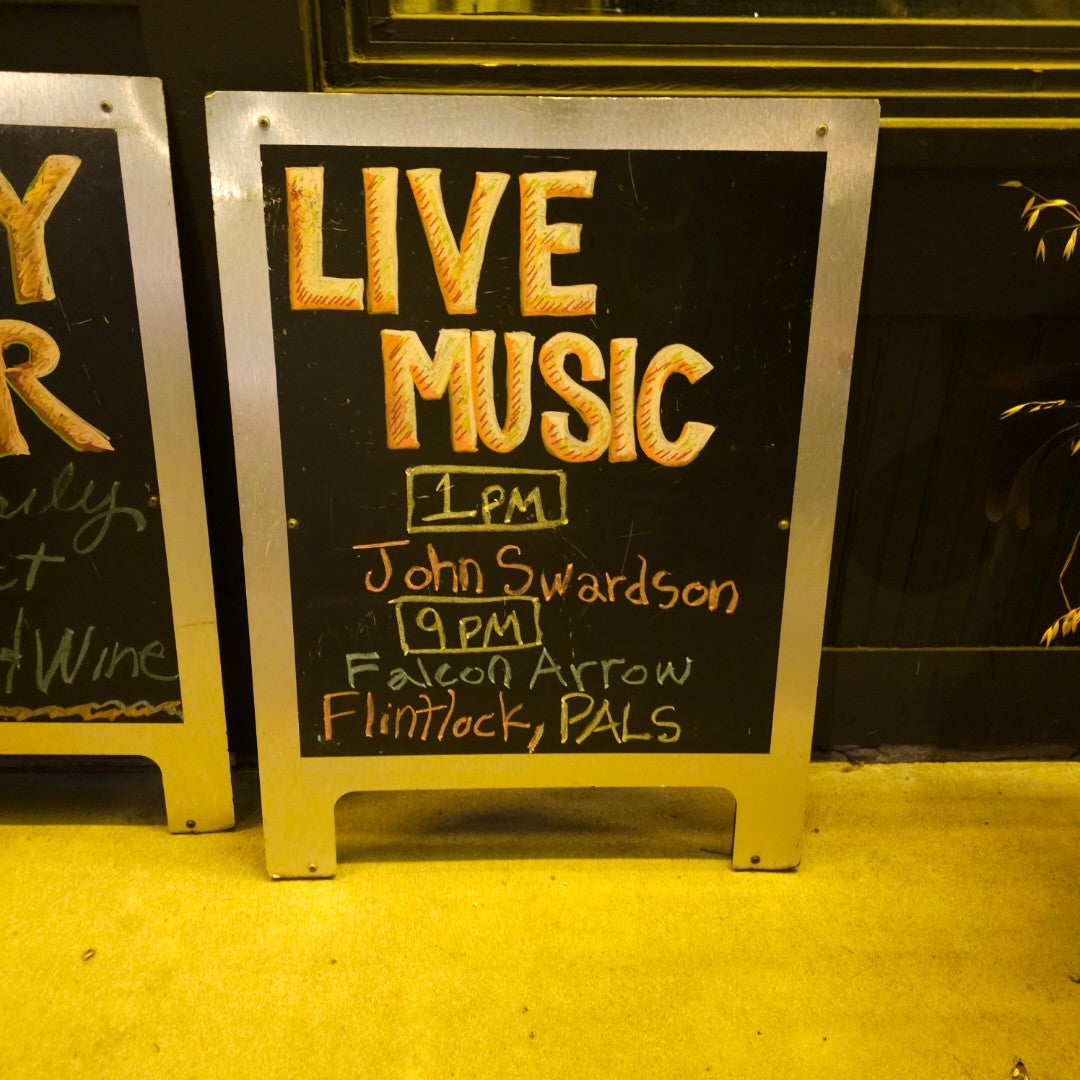 LIVE
MUSIC
1PM
John Swardson
9PM
Falcon Arrow
Flintlock, PALS
Y
R
Wine